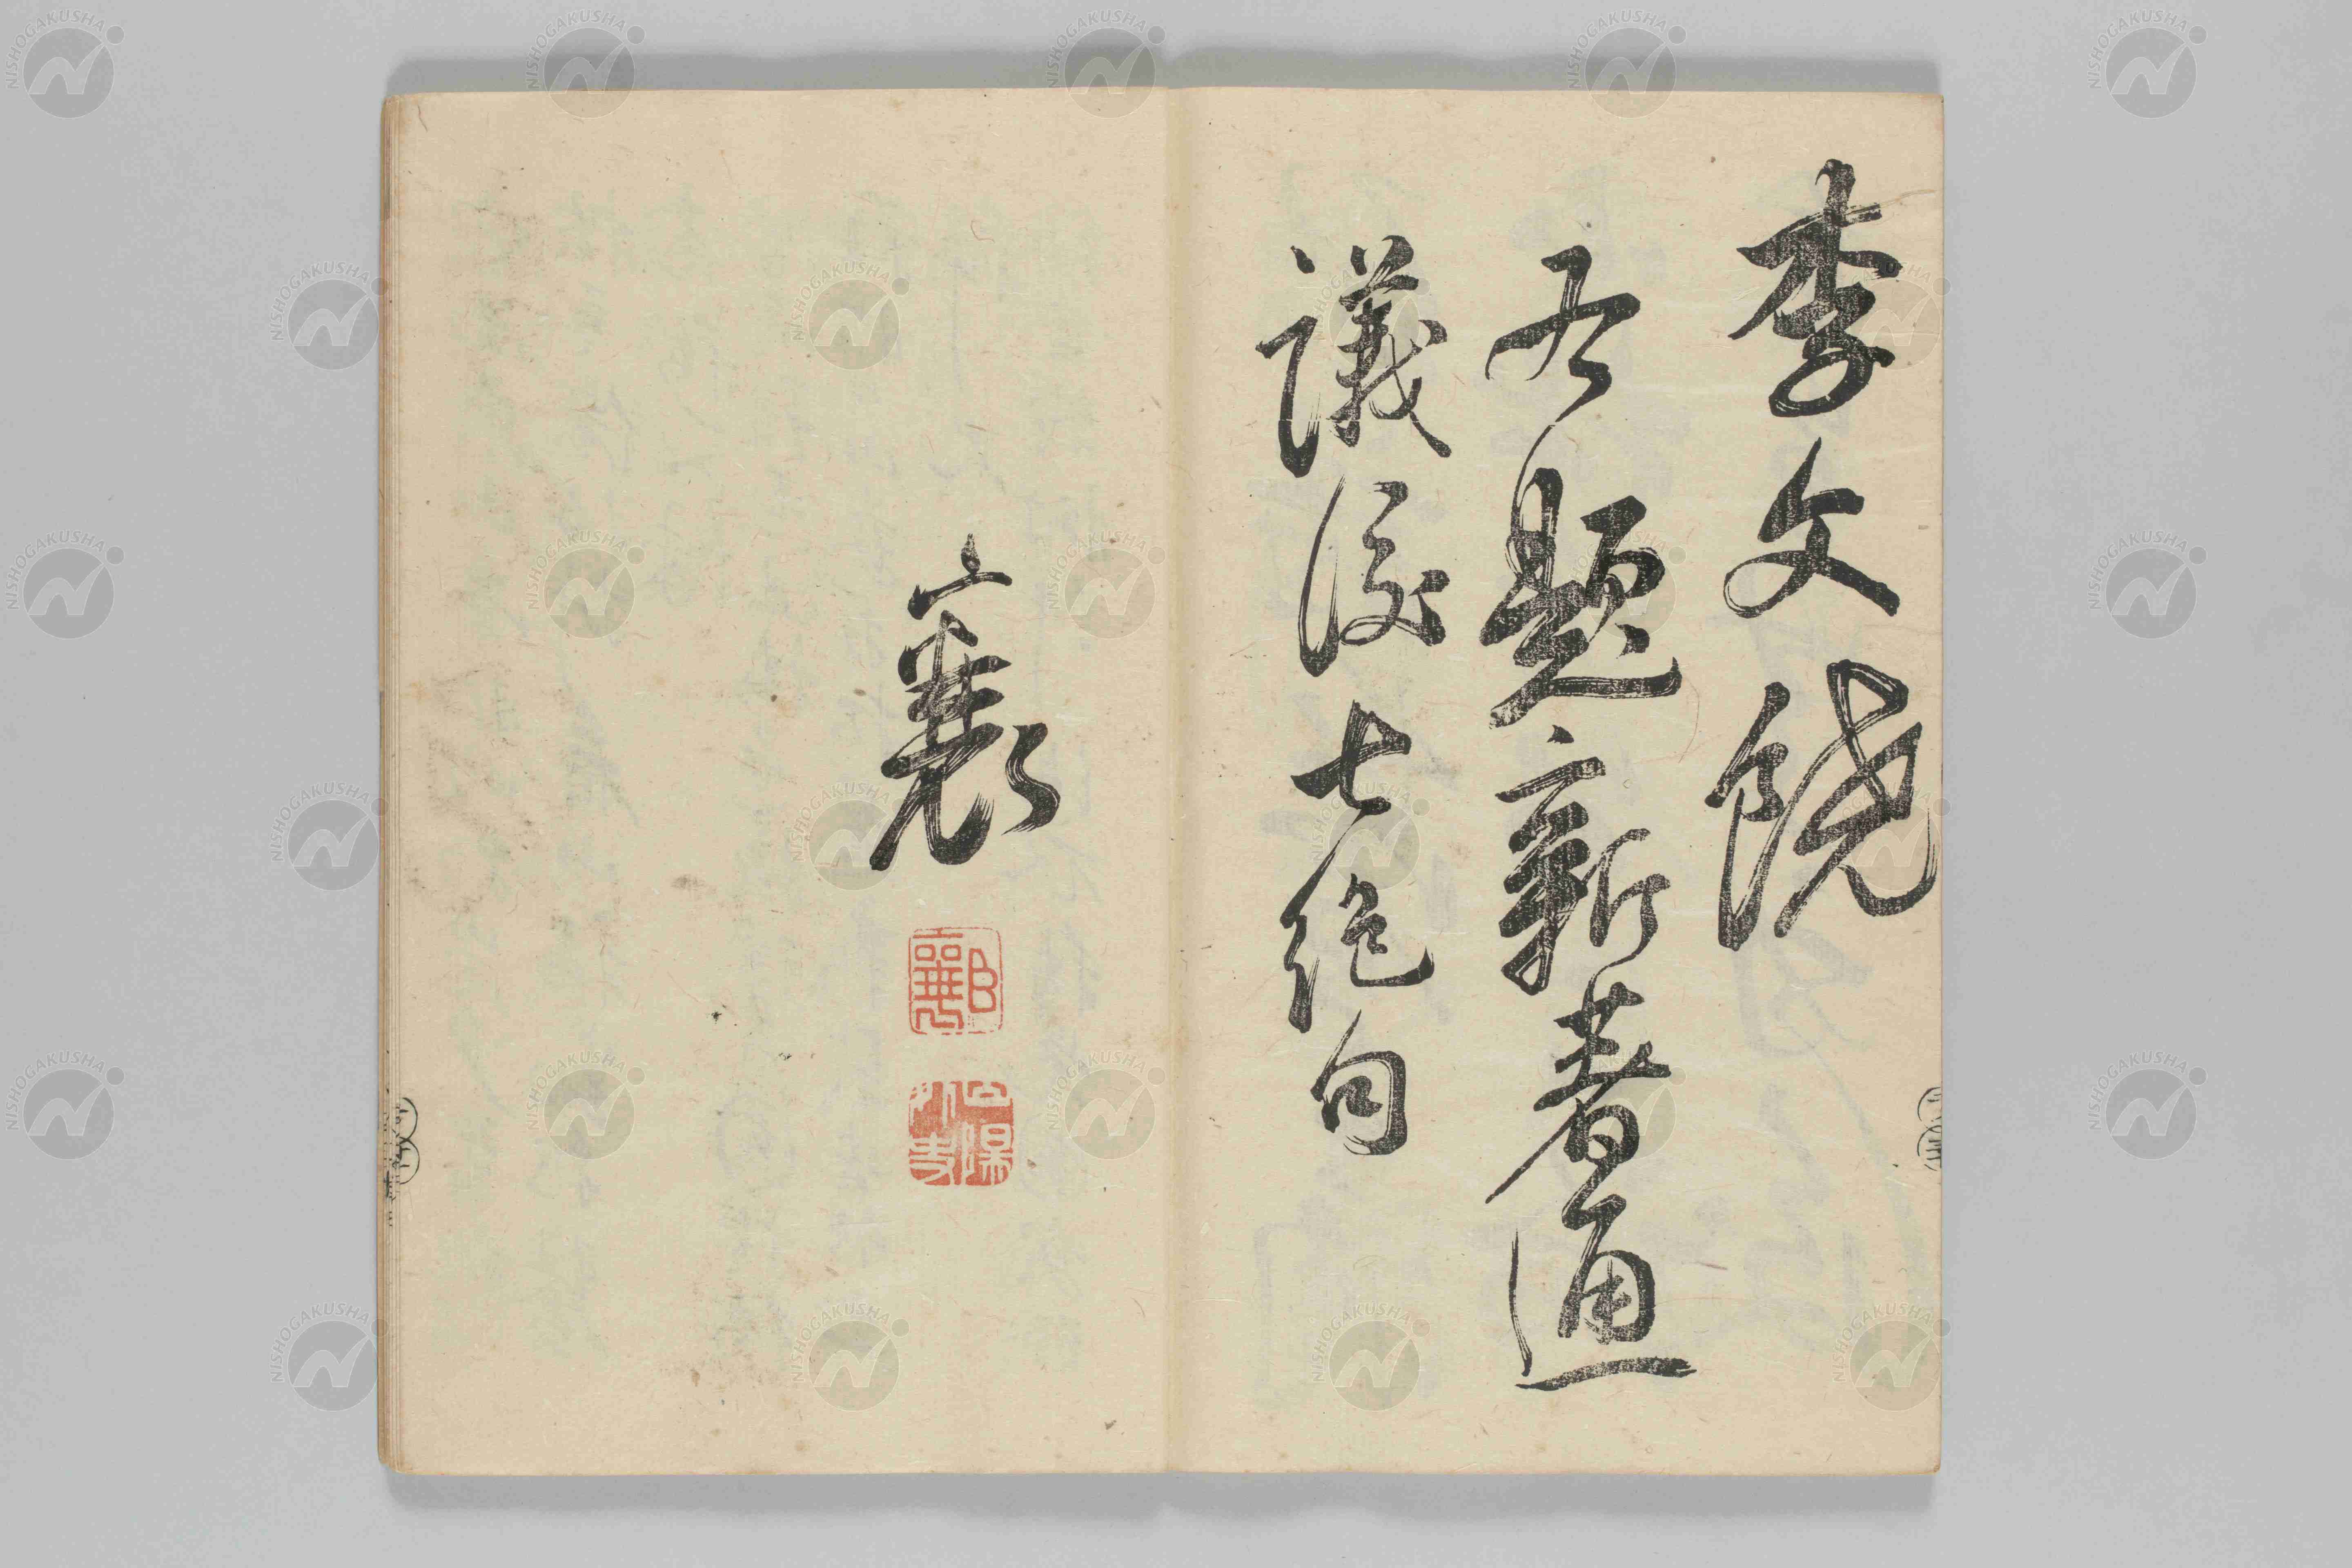 李文饒
右題新著通
議後七絶句
襄
NISHOGAKUSHA